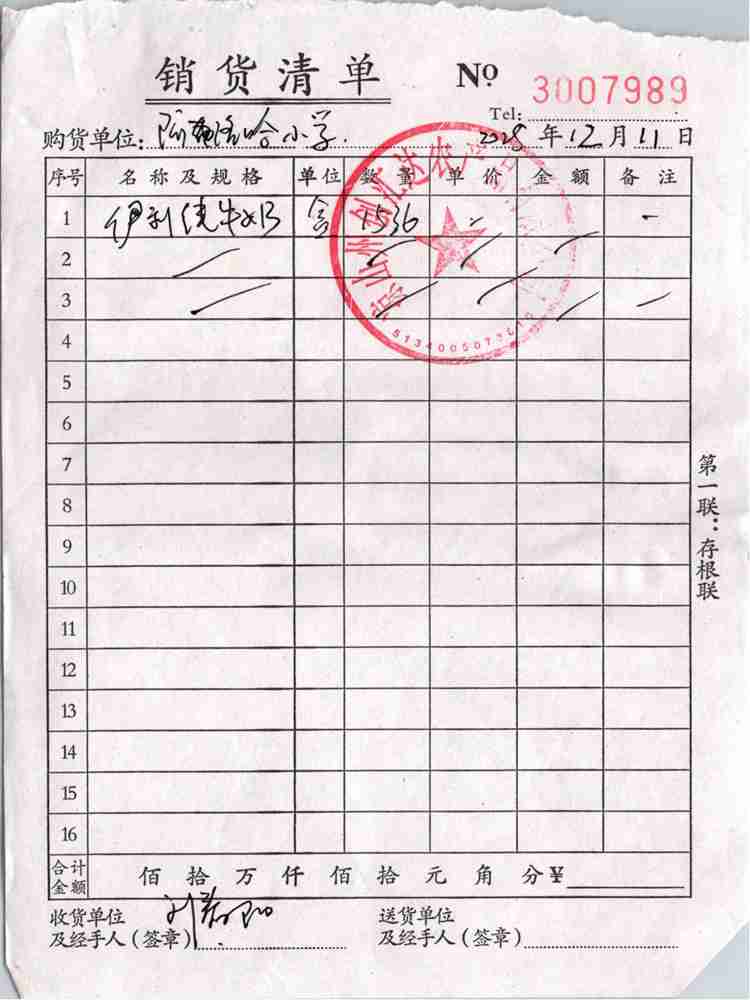 销货清单 № 3007989
Tel:
购货单位: 阿布洛哈小学. 年12月11日
序号 名称及规格 单位 数量 单价 金额 备注
1 伊利纯牛奶 盒 1536 - -
2
3
4
5
6
7
8
9
10
11
12
13
14
15
16
合计金额 佰拾万仟佰拾元角分¥
收货单位
及经手人(签章)
送货单位
及经手人(签章)
第一联:存根联